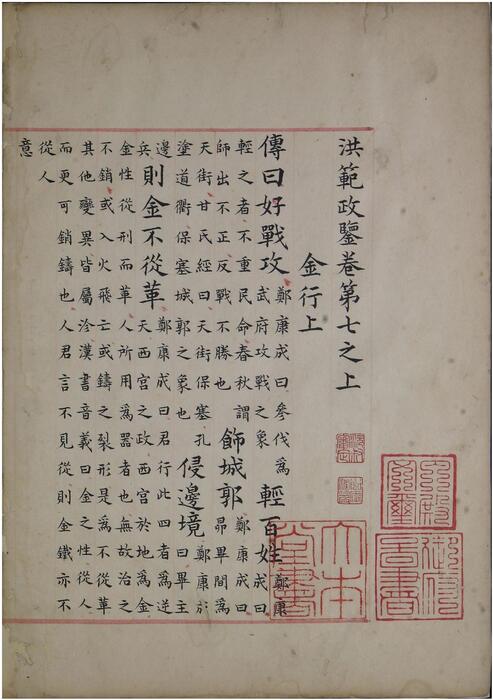 洪範政鑒卷第七之上
金行上
傳曰好戰攻鄭康成曰參伐爲武府攻戰之象輕百姓鄭康成曰
輕之者不重民命春秋謂師出不正反戰不勝也飾城郭鄭康成曰昴畢間爲
天街甘氏經曰天街保塞孔塗道衢保塞城郭之象也侵邊境鄭康成曰畢主
邊兵則金不從革鄭康成曰君行此四者爲逆天西宮之政西宮於地爲金
金性從刑而革人所用爲器者也無故治之不銷或入火飛亡或鑄之裂形是爲不從革
其他變異皆屬沴漢書音義曰金之性從人而更可銷鑄也人君言不見從則金鐵亦不
從人意
内殿文璽
御府圖書
大本堂書